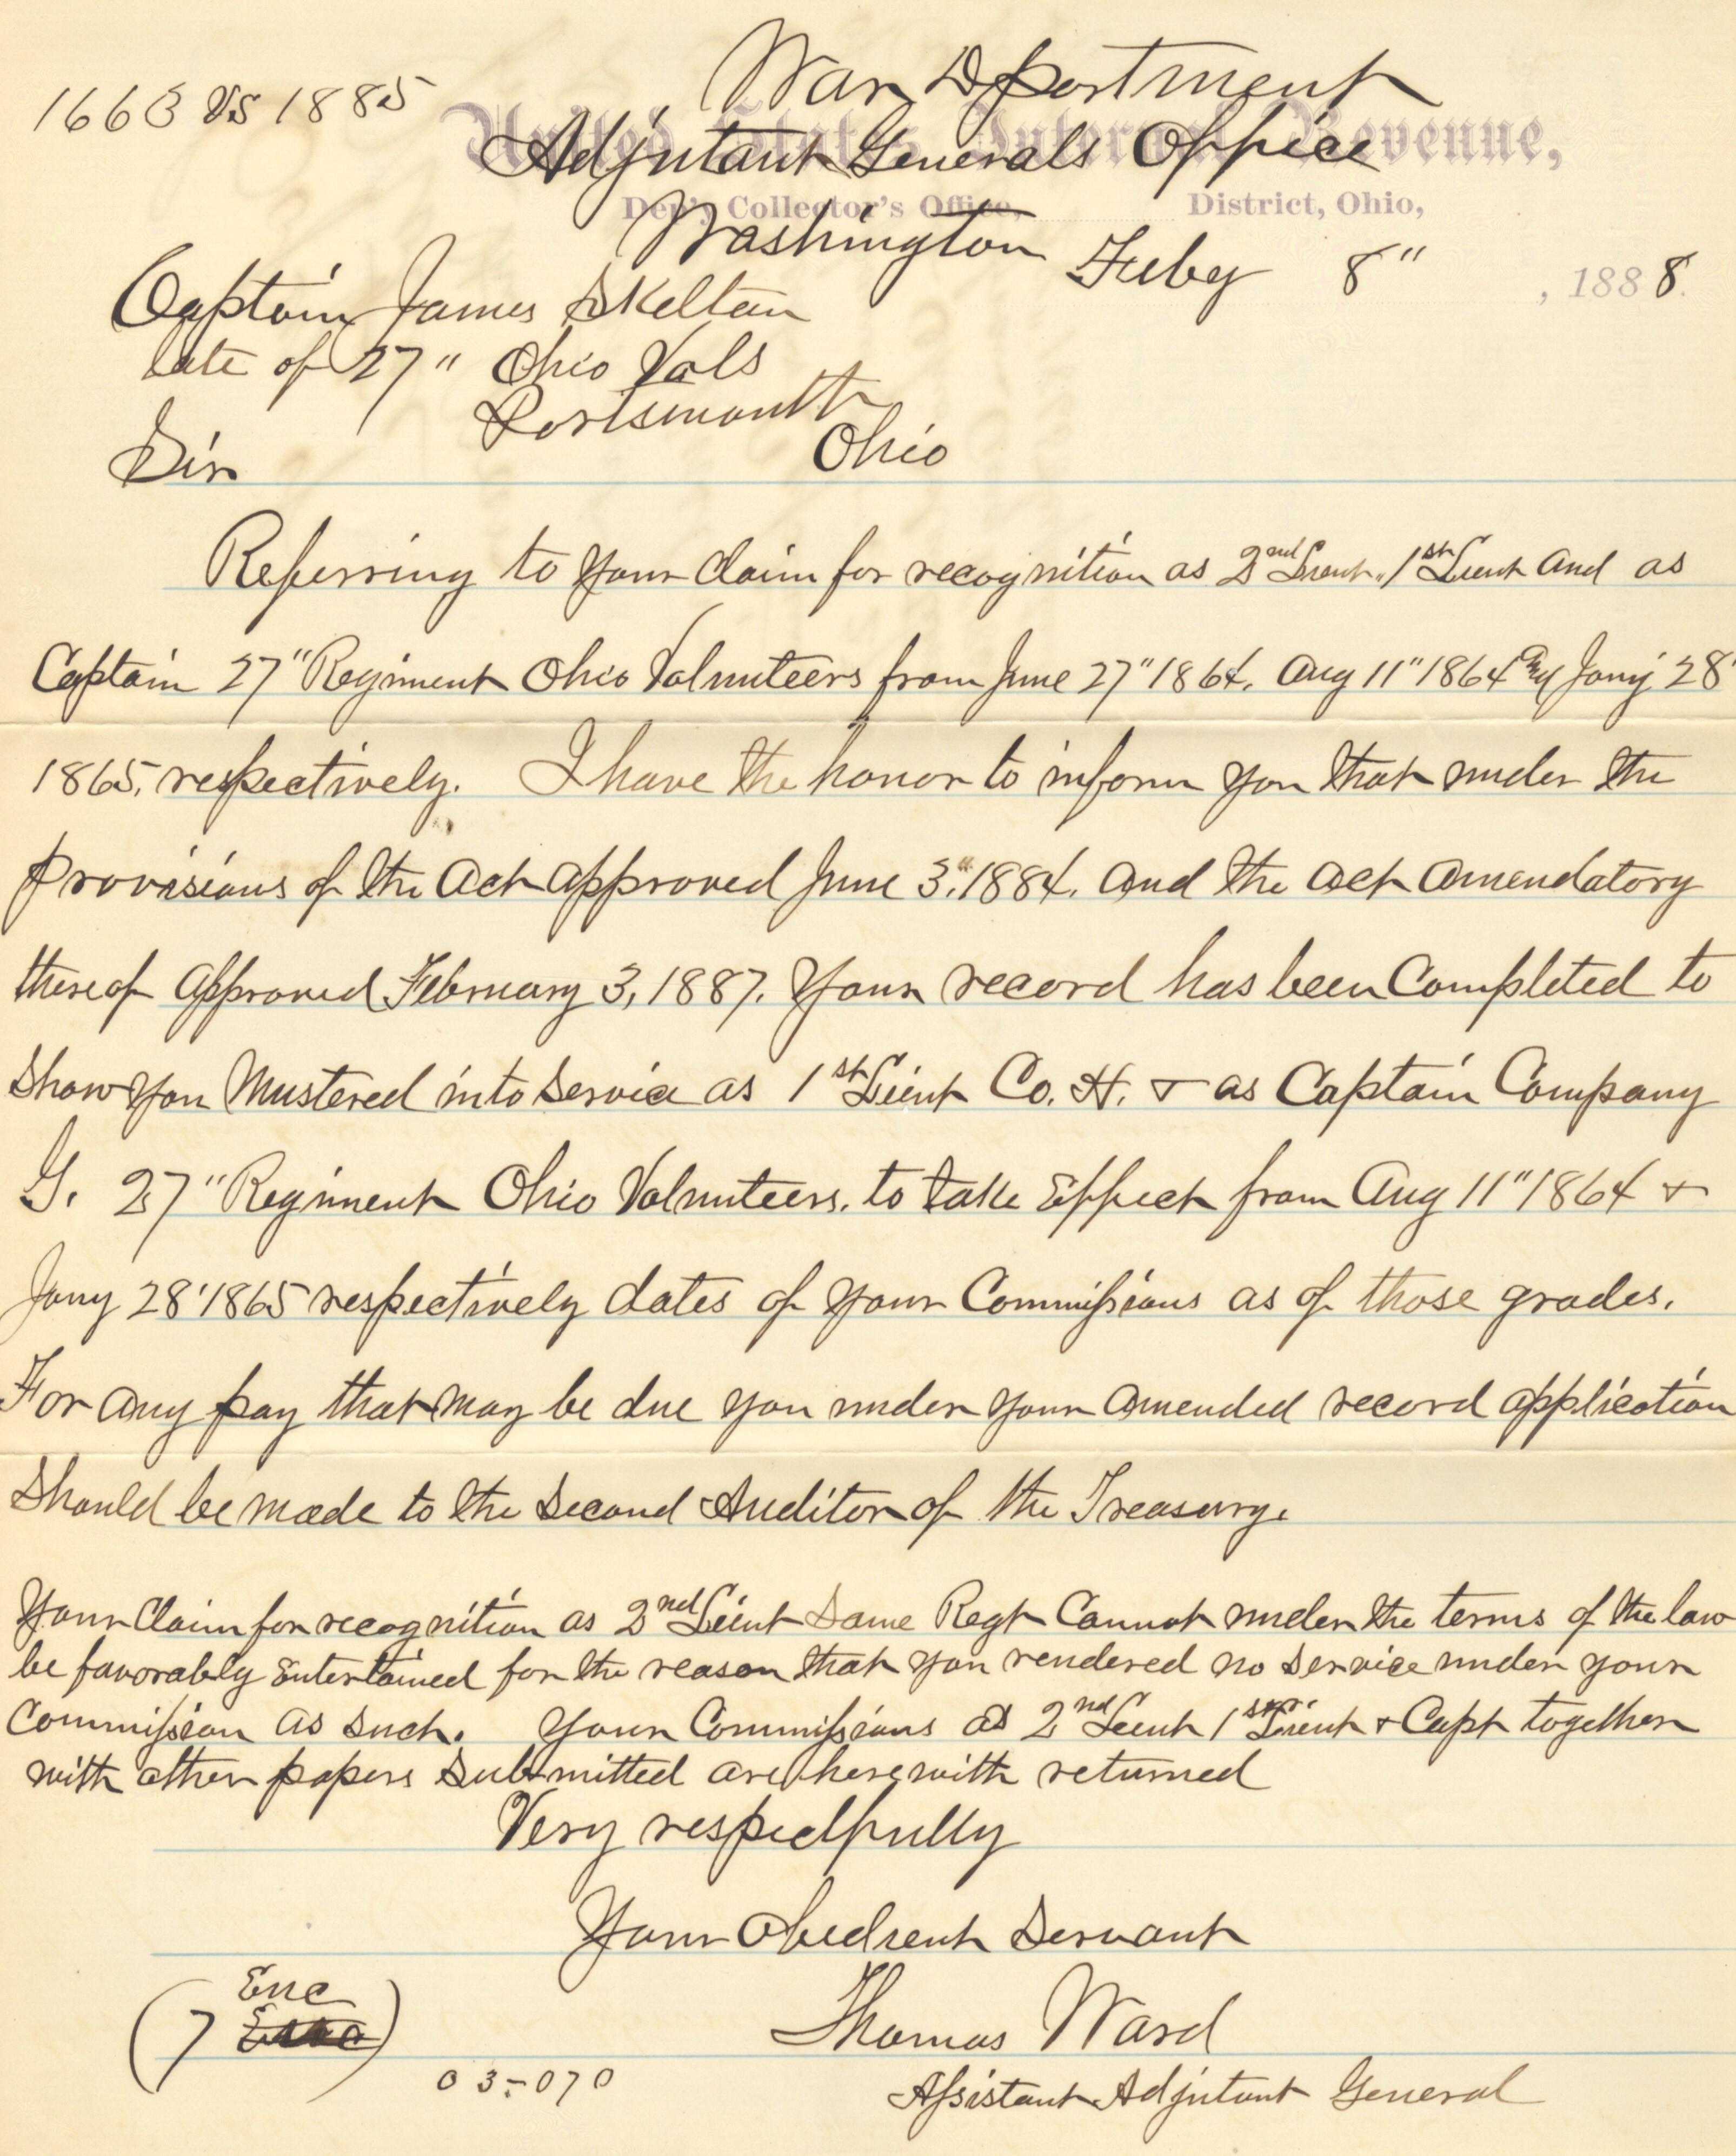 1663 VS 1885
War Department
United States Internal Revenue,
Adjutant Generals Office
Dep'y Collector's Office, District, Ohio,
Washington Feby 8" , 1888.
Captain James Skelton
late of 27" Ohio Vols
Portsmouth
Ohio
Sir
Referring to your claim for recognition as 2nd Lieut, 1st Lieut and as
Captain 27" Regiment Ohio Volunteers from June 27" 1864. Aug 11" 1864 and Jany 28'
1865, respectively. I have the honor to inform you that under the
provisions of the act approved June 3" 1884. and the act amendatory
thereof approved February 3, 1887. Your record has been completed to
show you mustered into service as 1st Lieut Co. H. & as Captain Company
G. 27" Regiment Ohio Volunteers. to take effect from Aug 11" 1864 &
Jany 28' 1865 respectively dates of your Commissions as of those grades.
For any pay that may be due you under your amended record application
should be made to the Second Auditor of the Treasury.
Your claim for recognition as 2nd Lieut same Regt cannot under the terms of the law
be favorably entertained for the reason that you rendered no service under your
Commission as such. Your Commissions as 2nd Lieut 1st Lieut & Capt together
with other papers submitted are herewith returned
Very respectfully
Your obedient servant
Enc
(7 )
Thomas Ward
03-070
Assistant Adjutant General